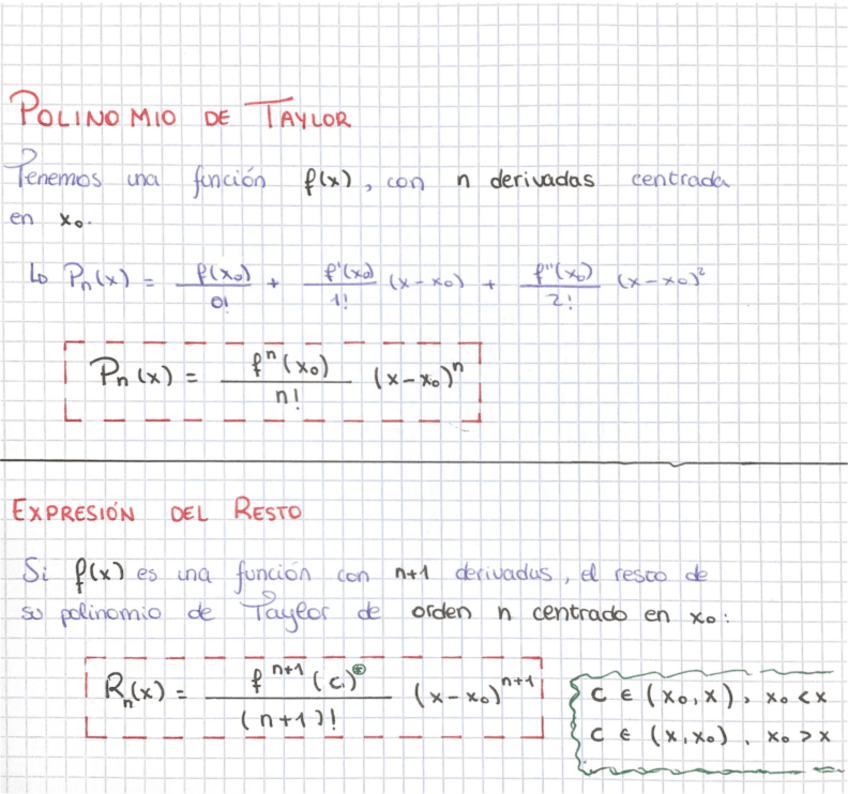 POLINOMIO DE TAYLOR
Tenemos una función f(x), con n derivadas centrada
en x₀.
↳ Pₙ(x) = f(x₀)/0! + f'(x₀)/1! (x-x₀) + f''(x₀)/2! (x-x₀)²
Pₙ(x) = fⁿ(x₀)/n! (x-x₀)ⁿ
EXPRESIÓN DEL RESTO
Si f(x) es una función con n+1 derivadas, el resto de
su polinomio de Taylor de orden n centrado en x₀:
Rₙ(x) = fⁿ⁺¹(c)⊛/(n+1)! (x-x₀)ⁿ⁺¹
c ∈ (x₀,x), x₀ < x
c ∈ (x,x₀), x₀ > x